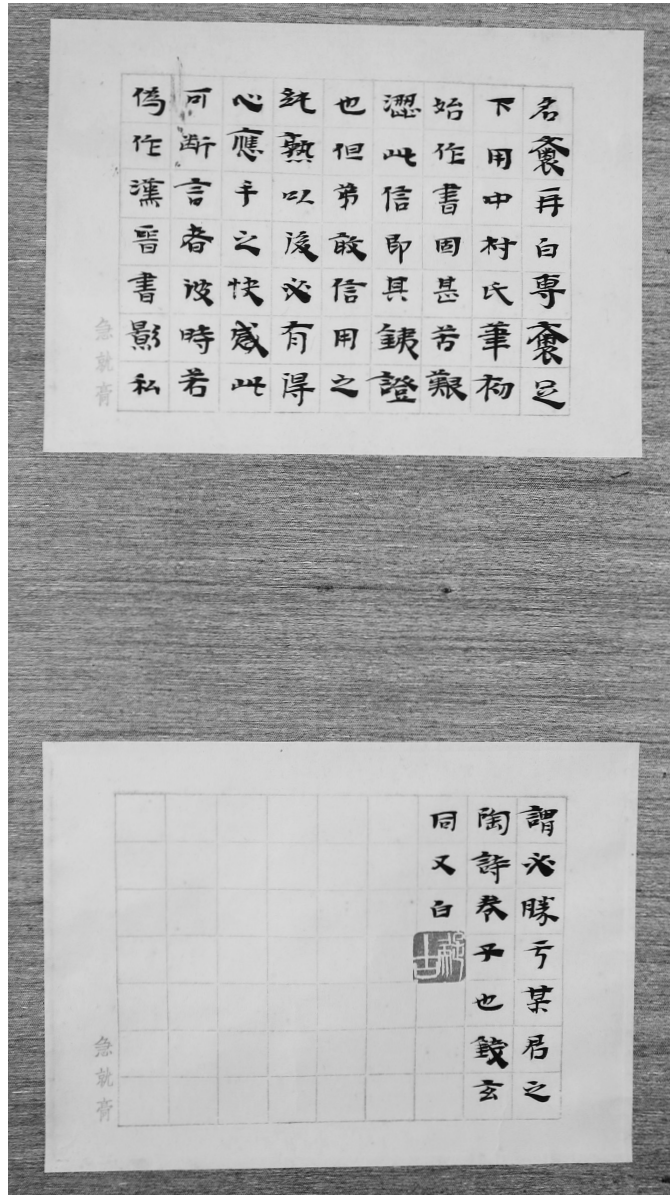 名褱再白專褱足
下用中村氏筆初
始作書固甚苦艱
澀此信即其銕證
也但弟敢信用之
純熟以後必有得
心應手之快感此
可斷言者彼時若
偽作漢晉書影私
急就廎
謂必勝亏某君之
陶詩卷子也錢玄
同又白
疑古
急就廎